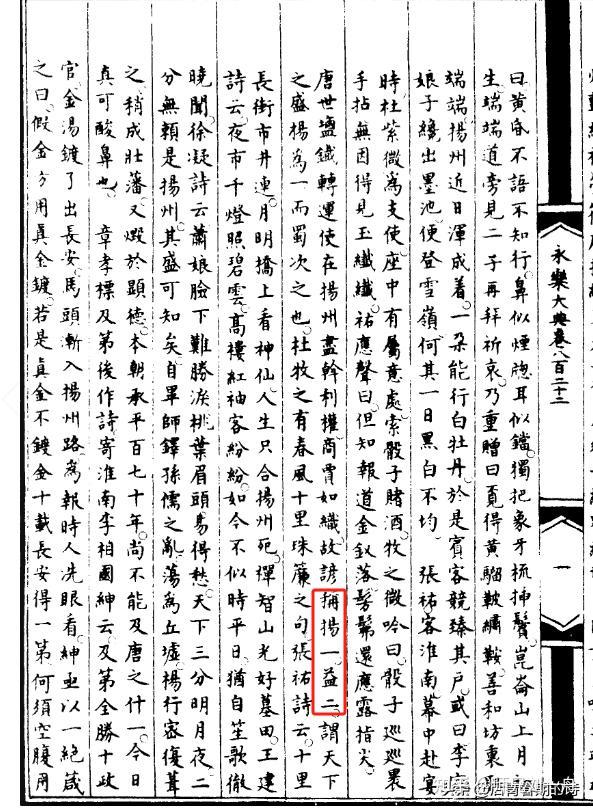 永樂大典卷八百二十二
一
曰黄昏不語不知行鼻似煙牕耳似鐺獨把象牙梳揷鬢崑崙山上月
生端端道旁見二子再拜祈哀乃重贈曰覓得黄騮鞁繡鞍善和坊裏
端端揚州近日渾成着一朶能行白牡丹於是賓客競臻其户或曰李家
娘子纔出墨池便登雪嶺何其一日黑白不均　張祐客淮南幕中赴宴
時杜紫微為支使座中有屬意處索骰子賭酒牧之微吟曰骰子巡巡裹
手拈無因得見玉纖纖祐應聲曰但知報道金釵落髣髴還應露指尖
唐世鹽鐵轉運使在揚州盡幹利權商賈如織故諺稱揚一益二謂天下
之盛揚為一而蜀次之也杜牧之有春風十里珠簾之句張祐詩云十里
長街市井連月明橋上看神仙人生只合揚州死禪智山光好墓田王建
詩云夜市千燈照碧雲高樓紅袖客紛紛如今不似時平日猶自笙歌徹
曉聞徐凝詩云蕭娘臉下難勝淚桃葉眉頭易得愁天下三分明月夜二
分無賴是揚州其盛可知矣自畢師鐸孫儒之亂蕩為丘墟楊行密復葺
之稍成壯藩又燬於顯德本朝承平百七十年尚不能及唐之什一今日
真可酸鼻也　章孝標及第後作詩寄淮南李相國紳云及第全勝十政
官金湯鍍了出長安馬頭漸入揚州路為報時人洗眼看紳亟以一絶箴
之曰假金方用真金鍍若是真金不鍍金十載長安得一第何須空腹用